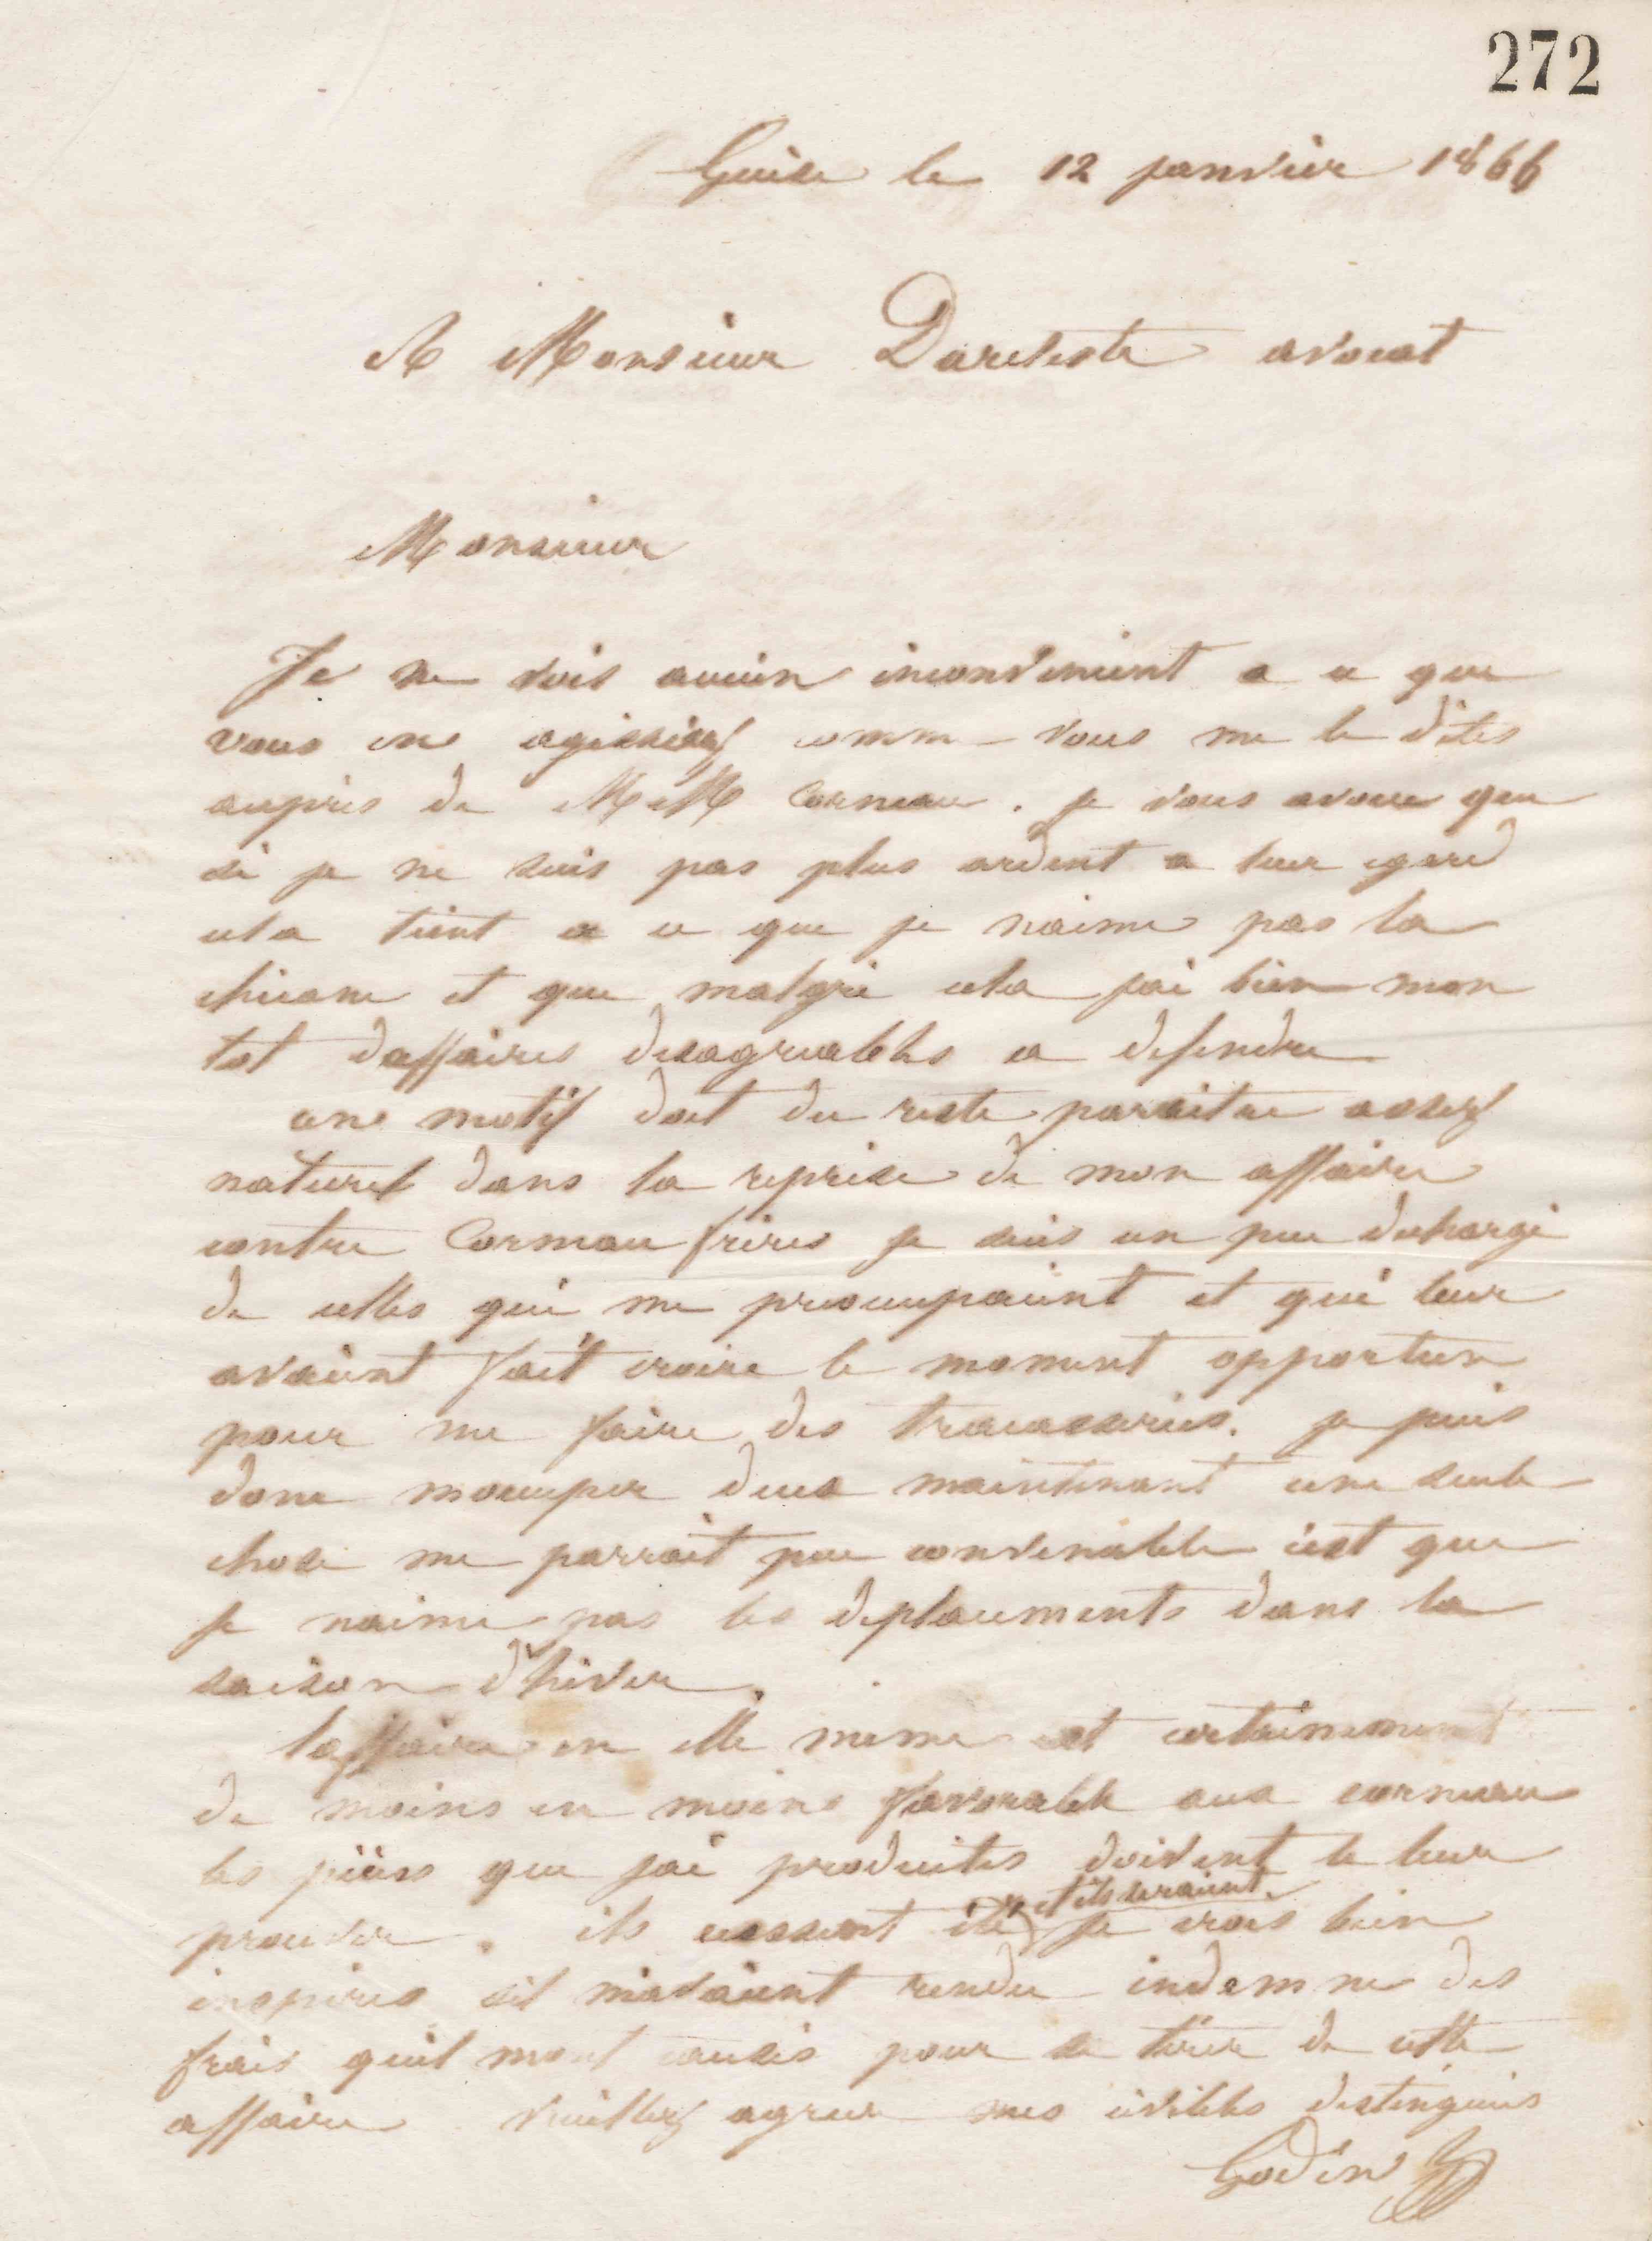 272
Guise le 12 janvier 1866
A Monsieur Dareste avocat
Monsieur
Je ne vois aucun inconvenient a ce que
vous en agissiez comme vous me le dites
aupres de MM Corneau . je vous avoue que
si je ne suis pas plus ardent a leur egard
cela tient a ce que je naime pas la
chicane et que malgré cela jai bien mon
lot daffaires desagreables a defendre
une motif doit du reste paraitre assez
naturel dans la reprise de mon affaire
contre Corneau frères je suis un peu dechargé
de celles qui me preocupaient et qui leur
avaient fait croire le moment opportun
pour me faire des tracasseries. je puis
donc mocuper deux maintenant une seule
chose me parrait peu convenable cest que
je naime pas les deplacements dans la
saison d'hiver.
laffaire en elle meme est certainement
de moins en moins favorable aux corneau
les pièces que jai produites doivent le leur
prouver . ils eussent été, et ils seraient, je crois bien
inspirés sil mavaient rendu indemne des
frais quil mont causés pour se tirer de cette
affaire veuillez agreer mes civilités distingués
Godin